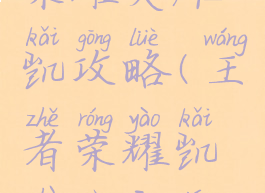 kǎi gōng lüè wáng
凯攻略(王
zhě róng yào kǎi
者荣耀凯